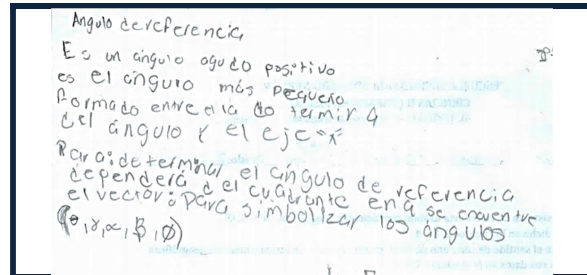 Angulo de referencia
Es un ángulo agudo positivo
es el ánguro más pequeño
Formado entre el la do termin
del ángulo y el eje "x"
Para: determinar el ángulo de referencia
dependerá del cuadrante en se encuentre
el vector: Para simbolizar los ángulos
(θ, γ, α, β, ϕ)